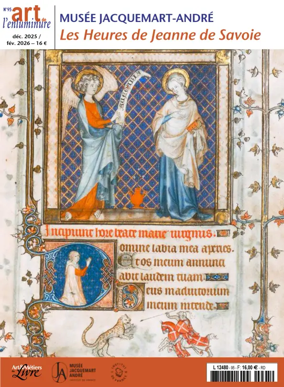 N°95
art
de
l'enluminure
déc. 2025 /
fév. 2026 – 16 €
MUSÉE JACQUEMART-ANDRÉ
Les Heures de Jeanne de Savoie
Incipiunt hore beate marie virginis.
Domine labia mea aperies.
Et os meum annunci
abit laudem tuam.
Deus in adiutorium
meum intende.
Art & Métiers
du Livre
MUSÉE
JACQUEMART
ANDRÉ
L 12488 - 95 - F: 16,00 € - RD